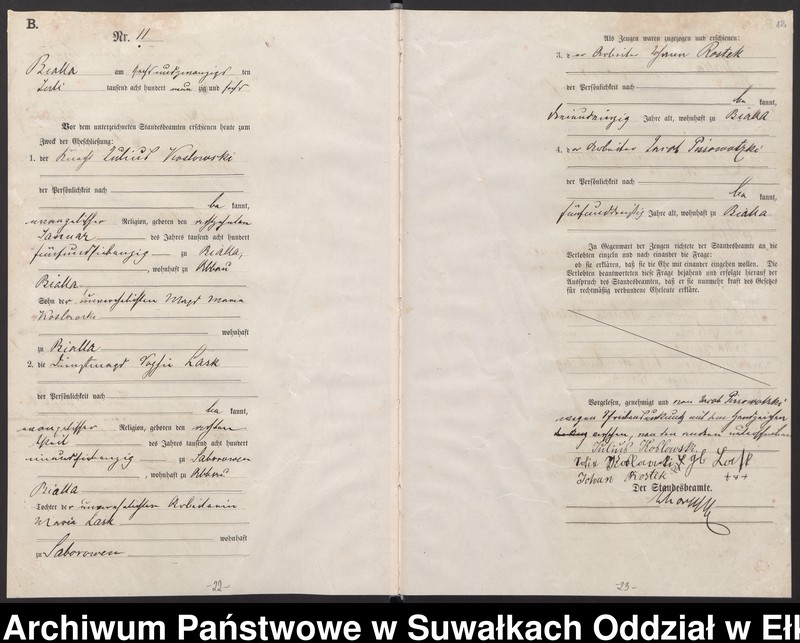 B.
Nr. 11
Bialla am sechsundzwanzigsten ten
Juli tausend acht hundert neun zig und sechs
Vor dem unterzeichneten Standesbeamten erschienen heute zum
Zweck der Eheschließung:
1. der Knecht Julius Koslowski
der Persönlichkeit nach
be kannt,
evangelischer Religion, geboren den achtzehnten
Januar des Jahres tausend acht hundert
fünfundsiebenzig zu Bialla,
, wohnhaft zu Abbau
Bialla
Sohn der unverehelichten Magd Maria
Koslowski
wohnhaft
zu Bialla
2. die Dienstmagd Sophie Lask
der Persönlichkeit nach
be kannt,
evangelischer Religion, geboren den achten
April des Jahres tausend acht hundert
einundsiebenzig zu Saborowen
, wohnhaft zu Abbau
Bialla
Tochter der unverehelichten Arbeiterin
Maria Lask
wohnhaft
zu Saborowen
-22-
12.
Als Zeugen waren zugezogen und erschienen:
3. der Arbeiter Johann Rostek
der Persönlichkeit nach
be kannt,
dreiundzig Jahre alt, wohnhaft zu Bialla
4. der Arbeiter Jacob
der Persönlichkeit nach
be kannt,
fünfunddreißig Jahre alt, wohnhaft zu Bialla
In Gegenwart der Zeugen richtete der Standesbeamte an die
Verlobten einzeln und nach einander die Frage:
ob sie erklären, daß sie die Ehe mit einander eingehen wollen. Die
Verlobten beantworteten diese Frage bejahend und erfolgte hierauf der
Ausspruch des Standesbeamten, daß er sie nunmehr kraft des Gesetzes
für rechtmäßig verbundene Eheleute erkläre.
Vorgelesen, genehmigt und von Jacob
wegen Schreibensunkunde mit dem Handzeichen
versehen, von den anderen unterschrieben
Julius Koslowski
Koslowski gb Lask
Johan Rostek +++
Der Standesbeamte.
-23-
Archiwum Państwowe w Suwałkach Oddział w Eł